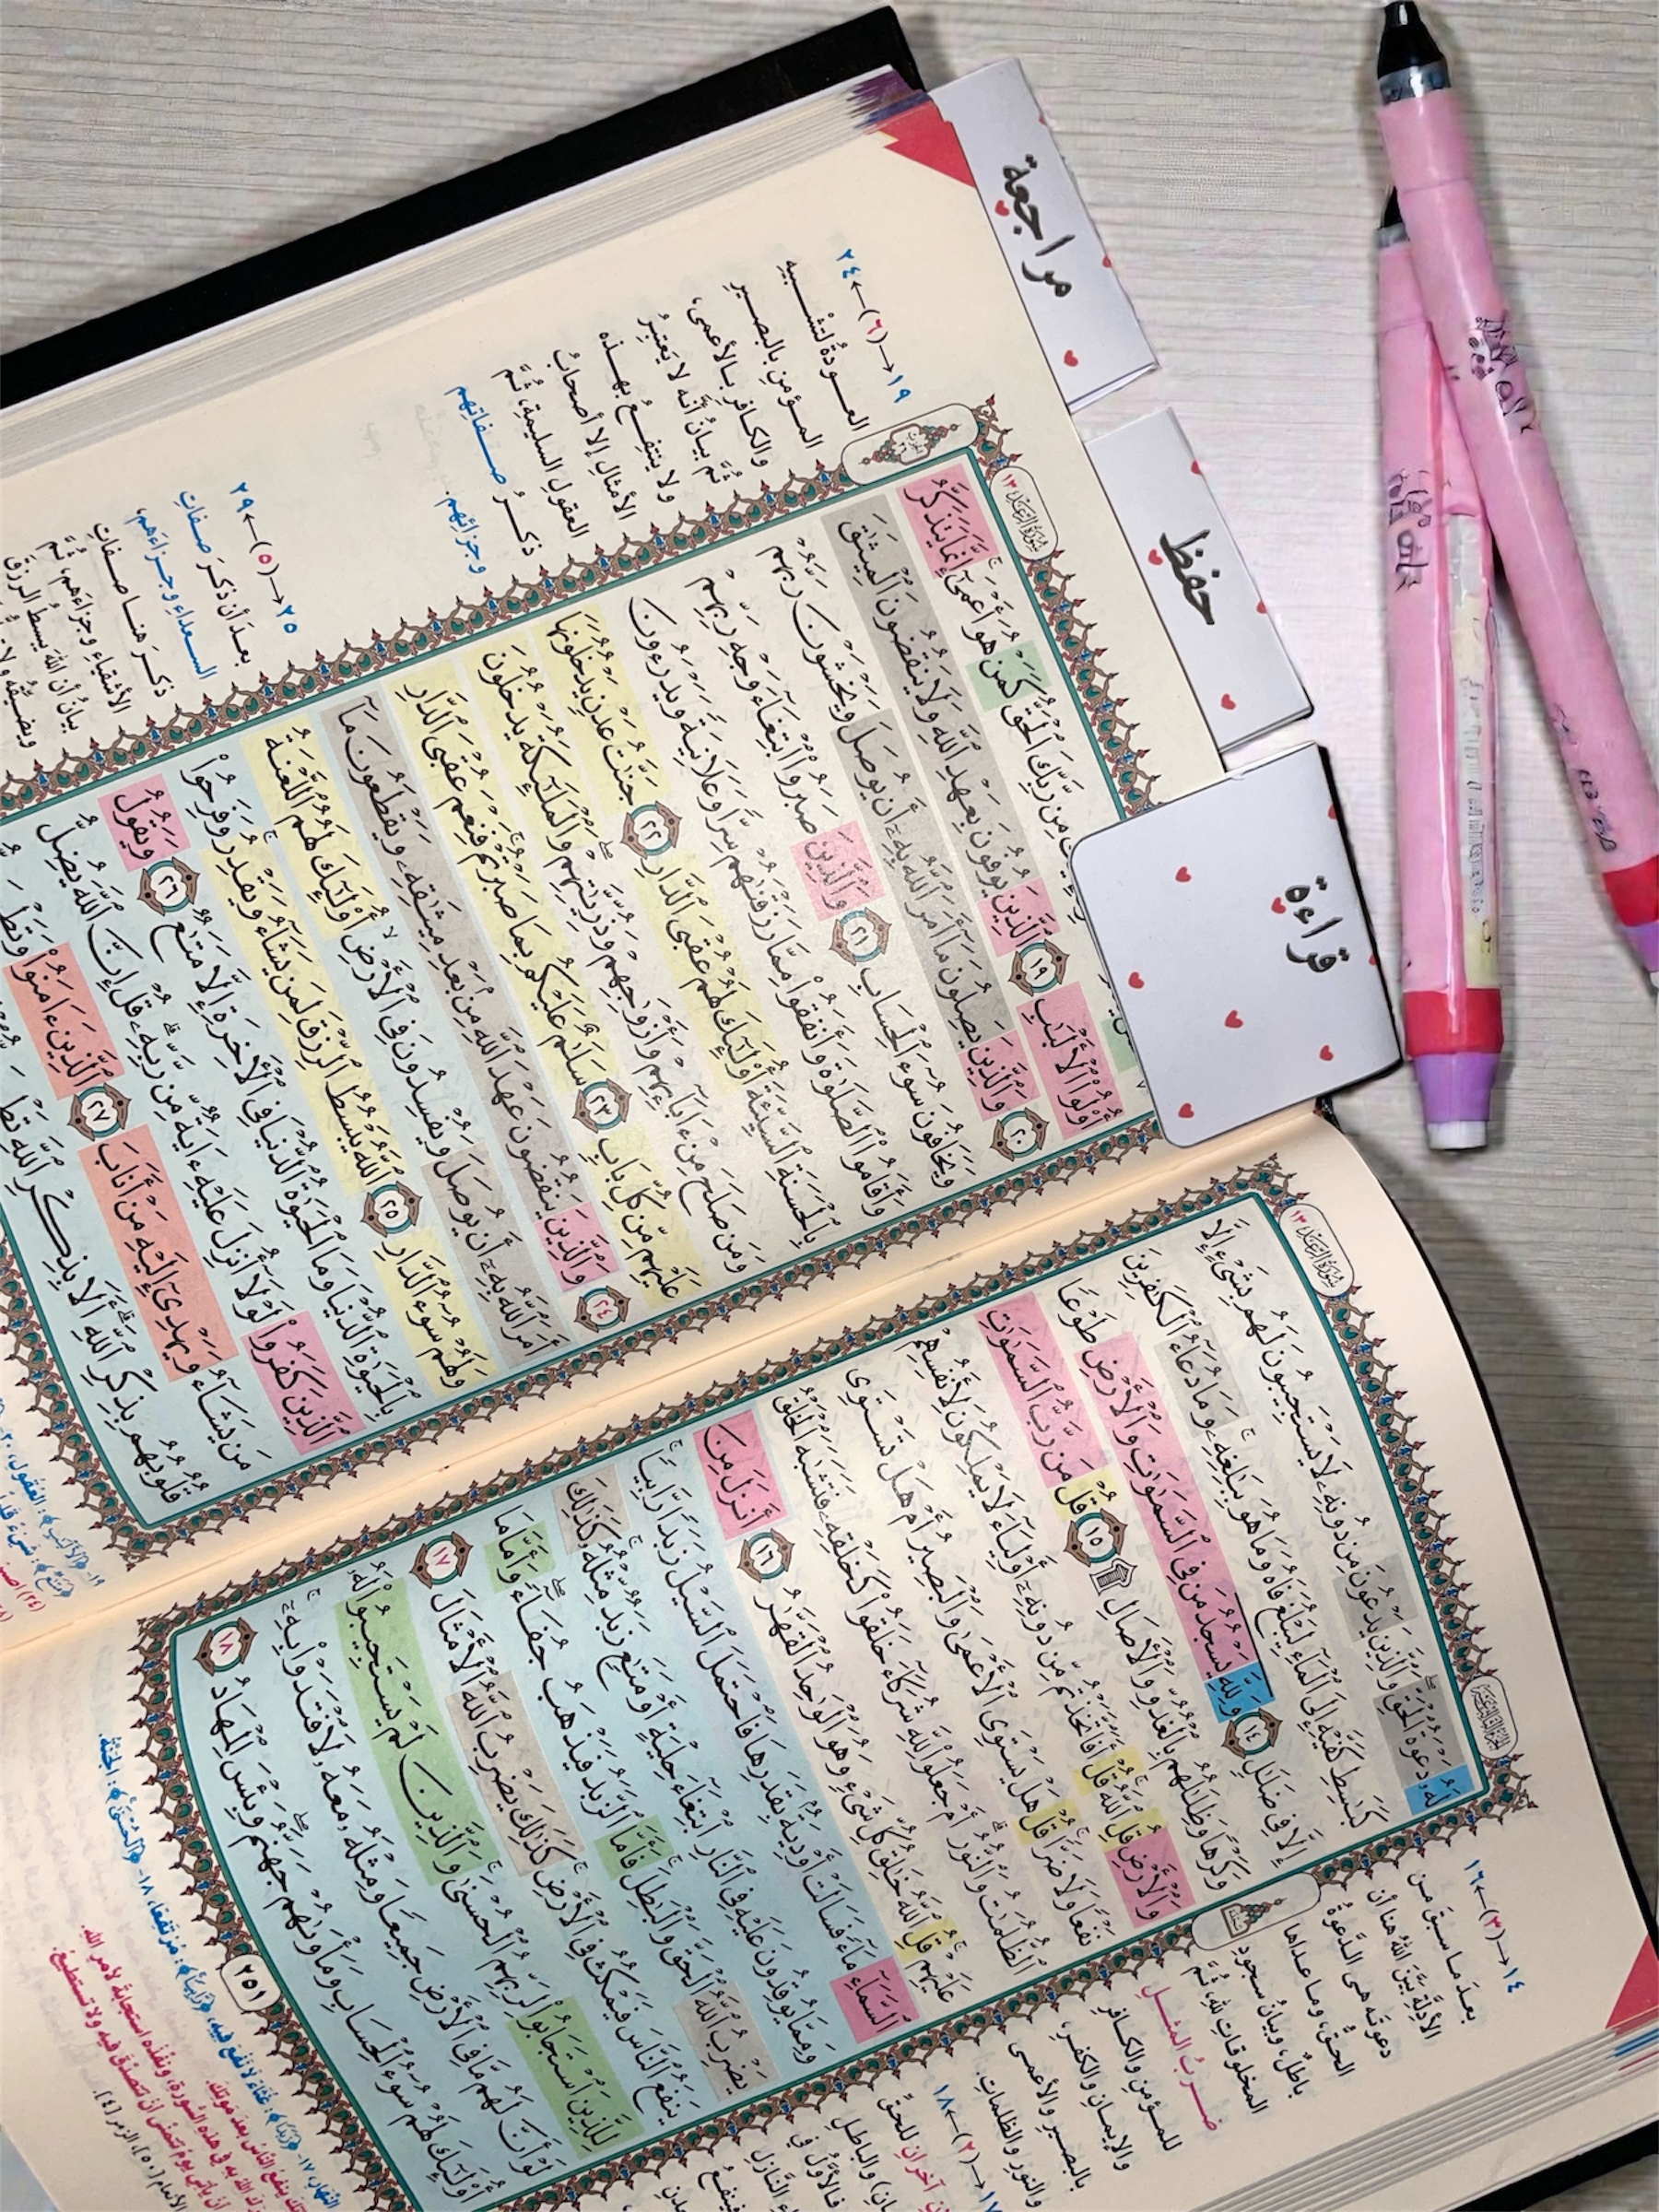 مراجعة
حفظ
قراءة
سُورَةُ الرَّعْدِ ١٣
لَهُۥ دَعْوَةُ ٱلْحَقِّ ۖ وَٱلَّذِينَ يَدْعُونَ مِن دُونِهِۦ لَا يَسْتَجِيبُونَ لَهُم بِشَىْءٍ إِلَّا
كَبَـٰسِطِ كَفَّيْهِ إِلَى ٱلْمَآءِ لِيَبْلُغَ فَاهُ وَمَا هُوَ بِبَـٰلِغِهِۦ ۚ وَمَا دُعَآءُ ٱلْكَـٰفِرِينَ
إِلَّا فِى ضَلَـٰلٍ ١٤ وَلِلَّهِ يَسْجُدُ مَن فِى ٱلسَّمَـٰوَٰتِ وَٱلْأَرْضِ طَوْعًا
وَكَرْهًا وَظِلَـٰلُهُم بِٱلْغُدُوِّ وَٱلْـَٔاصَالِ ۩ ١٥ قُلْ مَن رَّبُّ ٱلسَّمَـٰوَٰتِ
وَٱلْأَرْضِ قُلِ ٱللَّهُ ۚ قُلْ أَفَٱتَّخَذْتُم مِّن دُونِهِۦٓ أَوْلِيَآءَ لَا يَمْلِكُونَ لِأَنفُسِهِمْ
نَفْعًا وَلَا ضَرًّا ۚ قُلْ هَلْ يَسْتَوِى ٱلْأَعْمَىٰ وَٱلْبَصِيرُ أَمْ هَلْ تَسْتَوِى
ٱلظُّلُمَـٰتُ وَٱلنُّورُ ۗ أَمْ جَعَلُوا۟ لِلَّهِ شُرَكَآءَ خَلَقُوا۟ كَخَلْقِهِۦ فَتَشَـٰبَهَ ٱلْخَلْقُ
عَلَيْهِمْ ۚ قُلِ ٱللَّهُ خَـٰلِقُ كُلِّ شَىْءٍ وَهُوَ ٱلْوَٰحِدُ ٱلْقَهَّـٰرُ ١٦ أَنزَلَ مِنَ
ٱلسَّمَآءِ مَآءً فَسَالَتْ أَوْدِيَةٌۢ بِقَدَرِهَا فَٱحْتَمَلَ ٱلسَّيْلُ زَبَدًا رَّابِيًا ۚ
وَمِمَّا يُوقِدُونَ عَلَيْهِ فِى ٱلنَّارِ ٱبْتِغَآءَ حِلْيَةٍ أَوْ مَتَـٰعٍ زَبَدٌ مِّثْلُهُۥ ۚ كَذَٰلِكَ
يَضْرِبُ ٱللَّهُ ٱلْحَقَّ وَٱلْبَـٰطِلَ ۚ فَأَمَّا ٱلزَّبَدُ فَيَذْهَبُ جُفَآءً ۖ وَأَمَّا مَا
يَنفَعُ ٱلنَّاسَ فَيَمْكُثُ فِى ٱلْأَرْضِ ۚ كَذَٰلِكَ يَضْرِبُ ٱللَّهُ ٱلْأَمْثَالَ ١٧
لِلَّذِينَ ٱسْتَجَابُوا۟ لِرَبِّهِمُ ٱلْحُسْنَىٰ ۚ وَٱلَّذِينَ لَمْ يَسْتَجِيبُوا۟ لَهُۥ
لَوْ أَنَّ لَهُم مَّا فِى ٱلْأَرْضِ جَمِيعًا وَمِثْلَهُۥ مَعَهُۥ لَٱفْتَدَوْا۟ بِهِۦٓ ۚ
أُو۟لَـٰٓئِكَ لَهُمْ سُوٓءُ ٱلْحِسَابِ وَمَأْوَىٰهُمْ جَهَنَّمُ ۖ وَبِئْسَ ٱلْمِهَادُ ١٨
٢٥١
١٤→(٣)←١٦
بعدَ ما سبقَ من
الأدلَّةِ بَيَّنَ اللهُ هنا أن
دعوتَه هي الدَّعوةُ
الحقُّ، وما عداها
باطلٌ، وبيانُ سجودِ
المخلوقاتِ للهِ، ثُمَّ
ضربُ المثلِ
للمؤمنِ والكافرِ
والإيمانِ والكفرِ،
بالبصيرِ والأعمى
والنورِ والظلماتِ.
١٧→(٢)←١٨
سُورَةُ الرَّعْدِ ١٣
مِن رَّبِّكَ ٱلْحَقُّ كَمَنْ هُوَ أَعْمَىٰٓ ۚ إِنَّمَا يَتَذَكَّرُ
أُو۟لُوا۟ ٱلْأَلْبَـٰبِ ١٩ ٱلَّذِينَ يُوفُونَ بِعَهْدِ ٱللَّهِ وَلَا يَنقُضُونَ ٱلْمِيثَـٰقَ
٢٠ وَٱلَّذِينَ يَصِلُونَ مَآ أَمَرَ ٱللَّهُ بِهِۦٓ أَن يُوصَلَ وَيَخْشَوْنَ رَبَّهُمْ
وَيَخَافُونَ سُوٓءَ ٱلْحِسَابِ ٢١ وَٱلَّذِينَ صَبَرُوا۟ ٱبْتِغَآءَ وَجْهِ رَبِّهِمْ
وَأَقَامُوا۟ ٱلصَّلَوٰةَ وَأَنفَقُوا۟ مِمَّا رَزَقْنَـٰهُمْ سِرًّا وَعَلَانِيَةً وَيَدْرَءُونَ
بِٱلْحَسَنَةِ ٱلسَّيِّئَةَ أُو۟لَـٰٓئِكَ لَهُمْ عُقْبَى ٱلدَّارِ ٢٢ جَنَّـٰتُ عَدْنٍ يَدْخُلُونَهَا
وَمَن صَلَحَ مِنْ ءَابَآئِهِمْ وَأَزْوَٰجِهِمْ وَذُرِّيَّـٰتِهِمْ ۖ وَٱلْمَلَـٰٓئِكَةُ يَدْخُلُونَ
عَلَيْهِم مِّن كُلِّ بَابٍ ٢٣ سَلَـٰمٌ عَلَيْكُم بِمَا صَبَرْتُمْ ۚ فَنِعْمَ عُقْبَى ٱلدَّارِ
٢٤ وَٱلَّذِينَ يَنقُضُونَ عَهْدَ ٱللَّهِ مِنۢ بَعْدِ مِيثَـٰقِهِۦ وَيَقْطَعُونَ مَآ
أَمَرَ ٱللَّهُ بِهِۦٓ أَن يُوصَلَ وَيُفْسِدُونَ فِى ٱلْأَرْضِ ۙ أُو۟لَـٰٓئِكَ لَهُمُ ٱللَّعْنَةُ
وَلَهُمْ سُوٓءُ ٱلدَّارِ ٢٥ ٱللَّهُ يَبْسُطُ ٱلرِّزْقَ لِمَن يَشَآءُ وَيَقْدِرُ ۚ وَفَرِحُوا۟
بِٱلْحَيَوٰةِ ٱلدُّنْيَا وَمَا ٱلْحَيَوٰةُ ٱلدُّنْيَا فِى ٱلْـَٔاخِرَةِ إِلَّا مَتَـٰعٌ ٢٦ وَيَقُولُ
ٱلَّذِينَ كَفَرُوا۟ لَوْلَآ أُنزِلَ عَلَيْهِ ءَايَةٌ مِّن رَّبِّهِۦ ۗ قُلْ إِنَّ ٱللَّهَ يُضِلُّ
مَن يَشَآءُ وَيَهْدِىٓ إِلَيْهِ مَنْ أَنَابَ ٢٧ ٱلَّذِينَ ءَامَنُوا۟
قُلُوبُهُم بِذِكْرِ ٱللَّهِ ۗ أَلَا بِذِكْرِ ٱللَّهِ
١٩→(٦)←٢٤
العودةُ لتشبيهِ
المؤمنِ بالبصيرِ
والكافرِ بالأعمى،
ثُمَّ بيانُ أنَّه لا يَعتبِرُ
ولا ينتفِعُ بهذه
الأمثالِ إلا أصحابُ
العقولِ السليمةِ، ثُمَّ
ذكرُ صفاتِهم
وجزائِهم.
٢٥→(٥)←٢٩
بعدَ أن ذكرَ صفاتِ
السعداءِ وجزاءَهم،
ذكرَ هنا صفاتِ
الأشقياءِ وجزاءَهم، ثُمَّ
بيانُ أن اللهَ يبسطُ الرزقَ